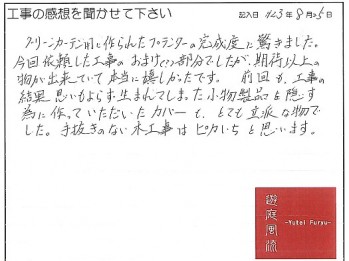 工事の感想を聞かせて下さい
記入日 H23年8月25日
グリーンカーテン用に作られたプランターの完成度に驚きました。
今回依頼した工事のおまけ的部分でしたが、期待以上の
物が出来ていて本当に嬉しかったです。 前回も、工事の
結果思いもよらず生まれてしまった小物製品を隠す
為に作っていただいたカバーも、とても立派な物で
した。手抜きのない木工事はピカいちと思います。
遊庭風流
-Yutei Furyu-